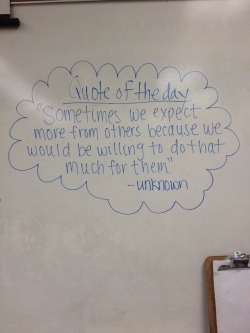 Quote of the day
"Sometimes we expect
more from others because we
would be willing to do that
much for them"
-unknown